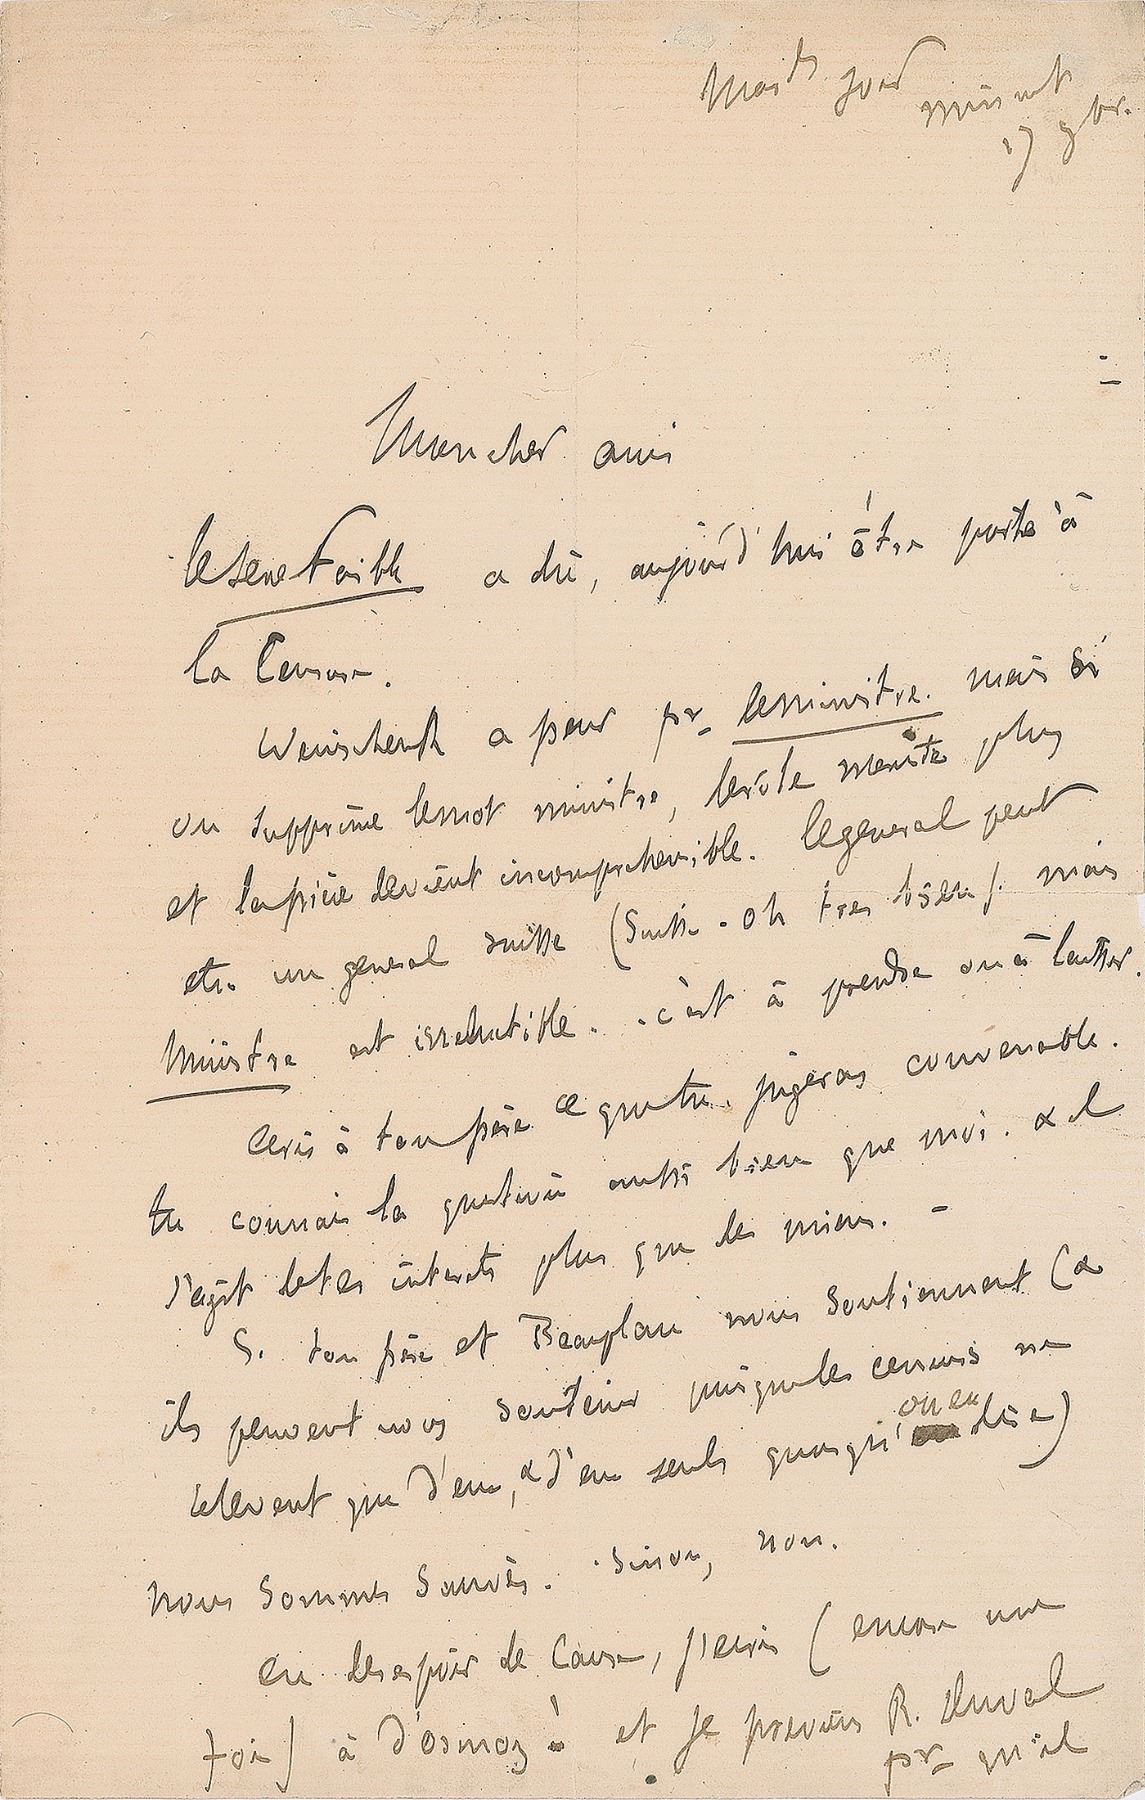 Mardi soir
minuit
17 9br.
Mon cher ami
le sexe faible a dû, aujourd'hui être porté à
la Censure.
Weinschenk a peur pr le ministre. mais si
on supprime le mot ministre, le rôle n'existe plus
et la pièce devient incomprehensible. le general peut
etre un general suisse (Suisse. oh tres bien). mais
Ministre est irreductible. c'est à prendre ou à laisser.
Ecris à ton père ce que tu jugeras convenable.
tu connais la question aussi bien que moi. & il
s'agit de tes interets plus que des miens. –
Si ton père et Beauplan nous soutiennent (&
ils peuvent nous soutenir puisque les censeurs ne
relevent que d'eux, & d'eux seuls quoiqu'on en dise)
nous sommes sauvés. Sinon, non.
en desespoir de Cause, j'ecris (encore une
fois) à d'Osmoy! et je previens R. Duval
pr qu'il